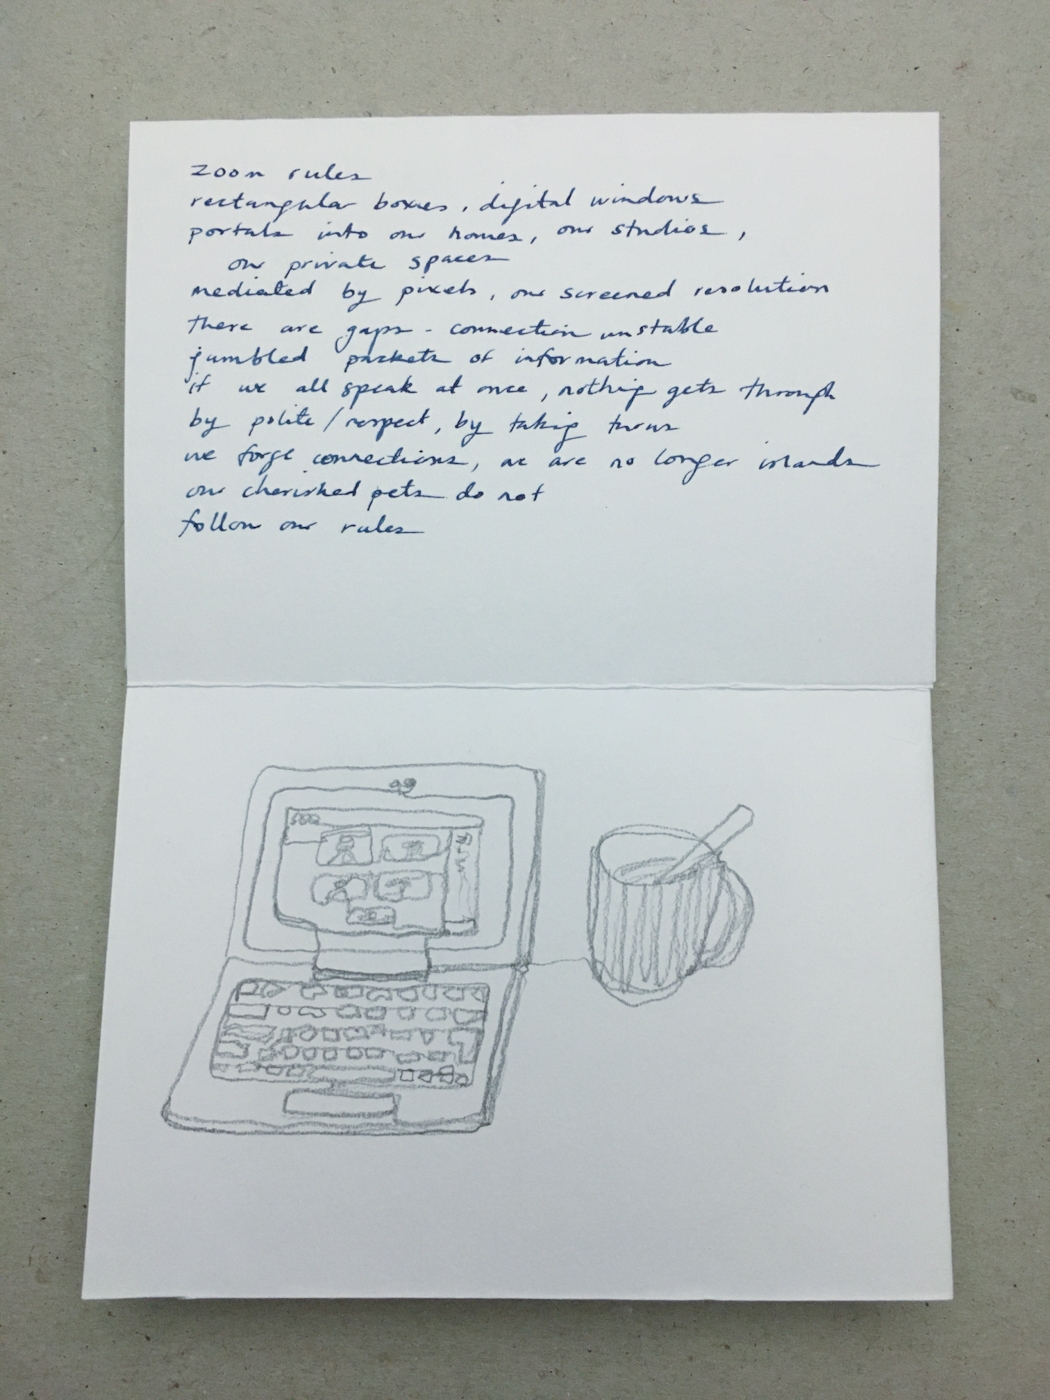 zoom rules
rectangular boxes, digital windows
portals into our homes, our studios,
our private spaces
mediated by pixels, our screened resolution
there are gaps - connection unstable
jumbled packets of information
if we all speak at once, nothing gets through
by polite/respect, by taking turns
we forge connections, we are no longer islands
our cherished pets do not
follow our rules